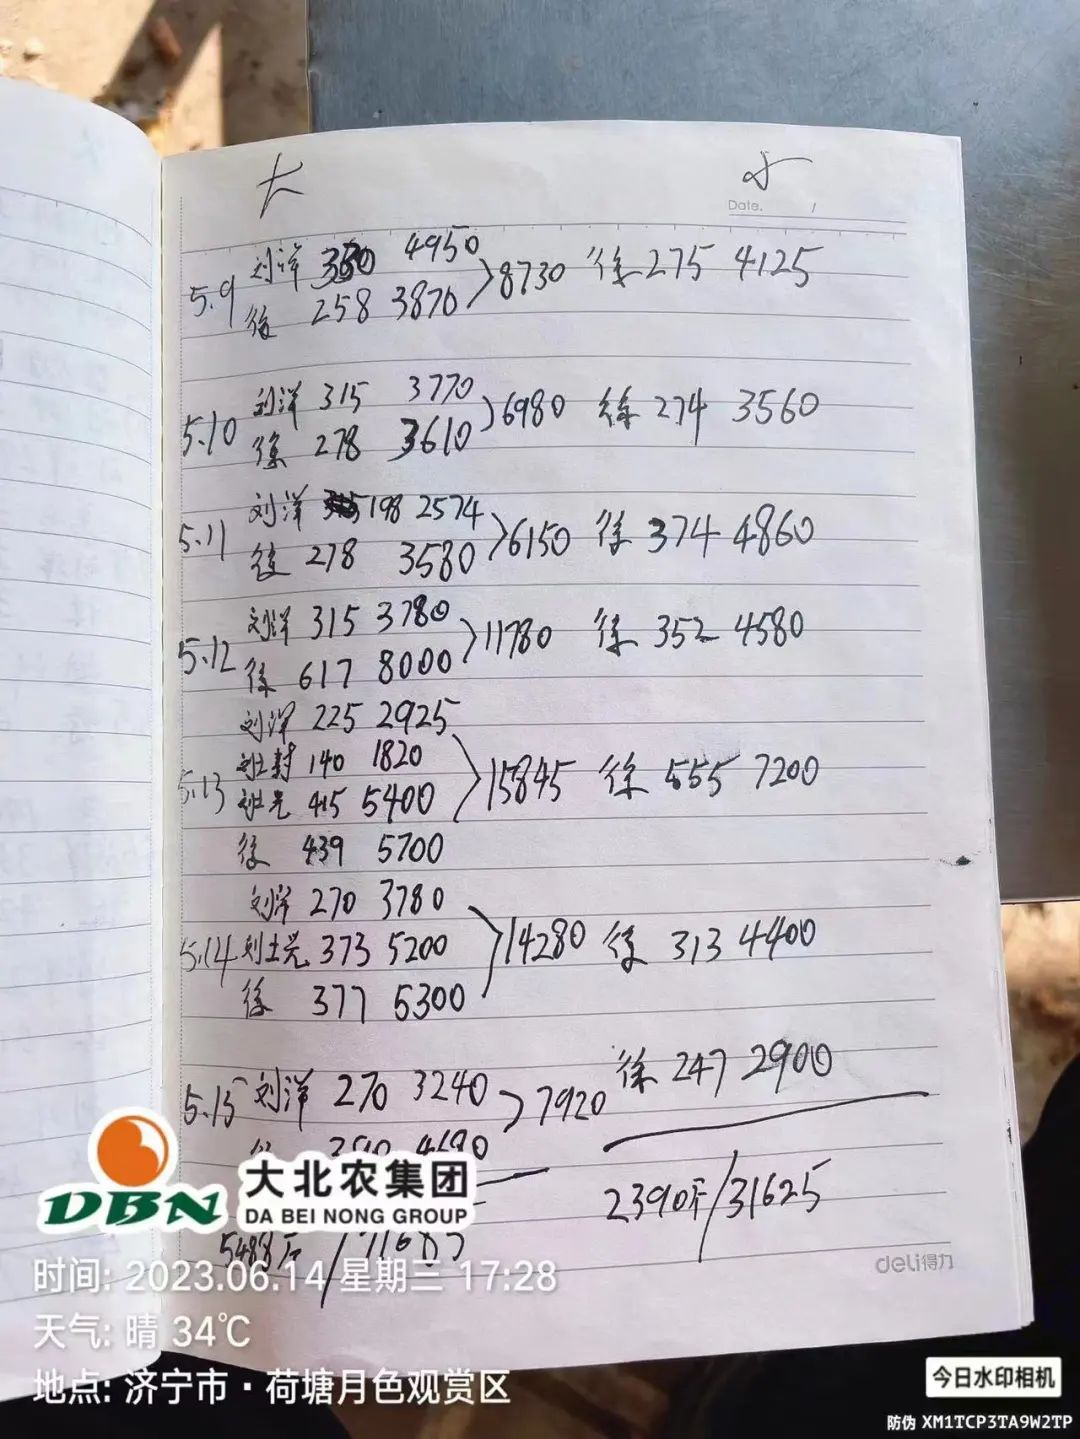 大 小
Date. /
刘洋 330 4950
5.9 >8730 徐 275 4125
徐 258 3870
刘洋 315 3770
5.10 >6980 徐 274 3560
徐 278 3610
刘洋 198 2574
5.11 >6150 徐 374 4860
徐 278 3580
刘洋 315 3780
5.12 >11780 徐 352 4580
徐 617 8000
刘洋 225 2925
140 1820
5.13 415 5400 >15845 徐 555 7200
徐 439 5700
刘洋 270 3780
5.14 刘土光 373 5200 >14280 徐 313 4400
徐 377 5300
5.15 刘洋 270 3240 >7920 徐 247 2900
4690
2390斤/31625
5488斤
deli得力
DBN 大北农集团
DA BEI NONG GROUP
时间: 2023.06.14 星期三 17:28
天气: 晴 34℃
地点: 济宁市·荷塘月色观赏区
今日水印相机
防伪 XM1TCP3TA9W2TP